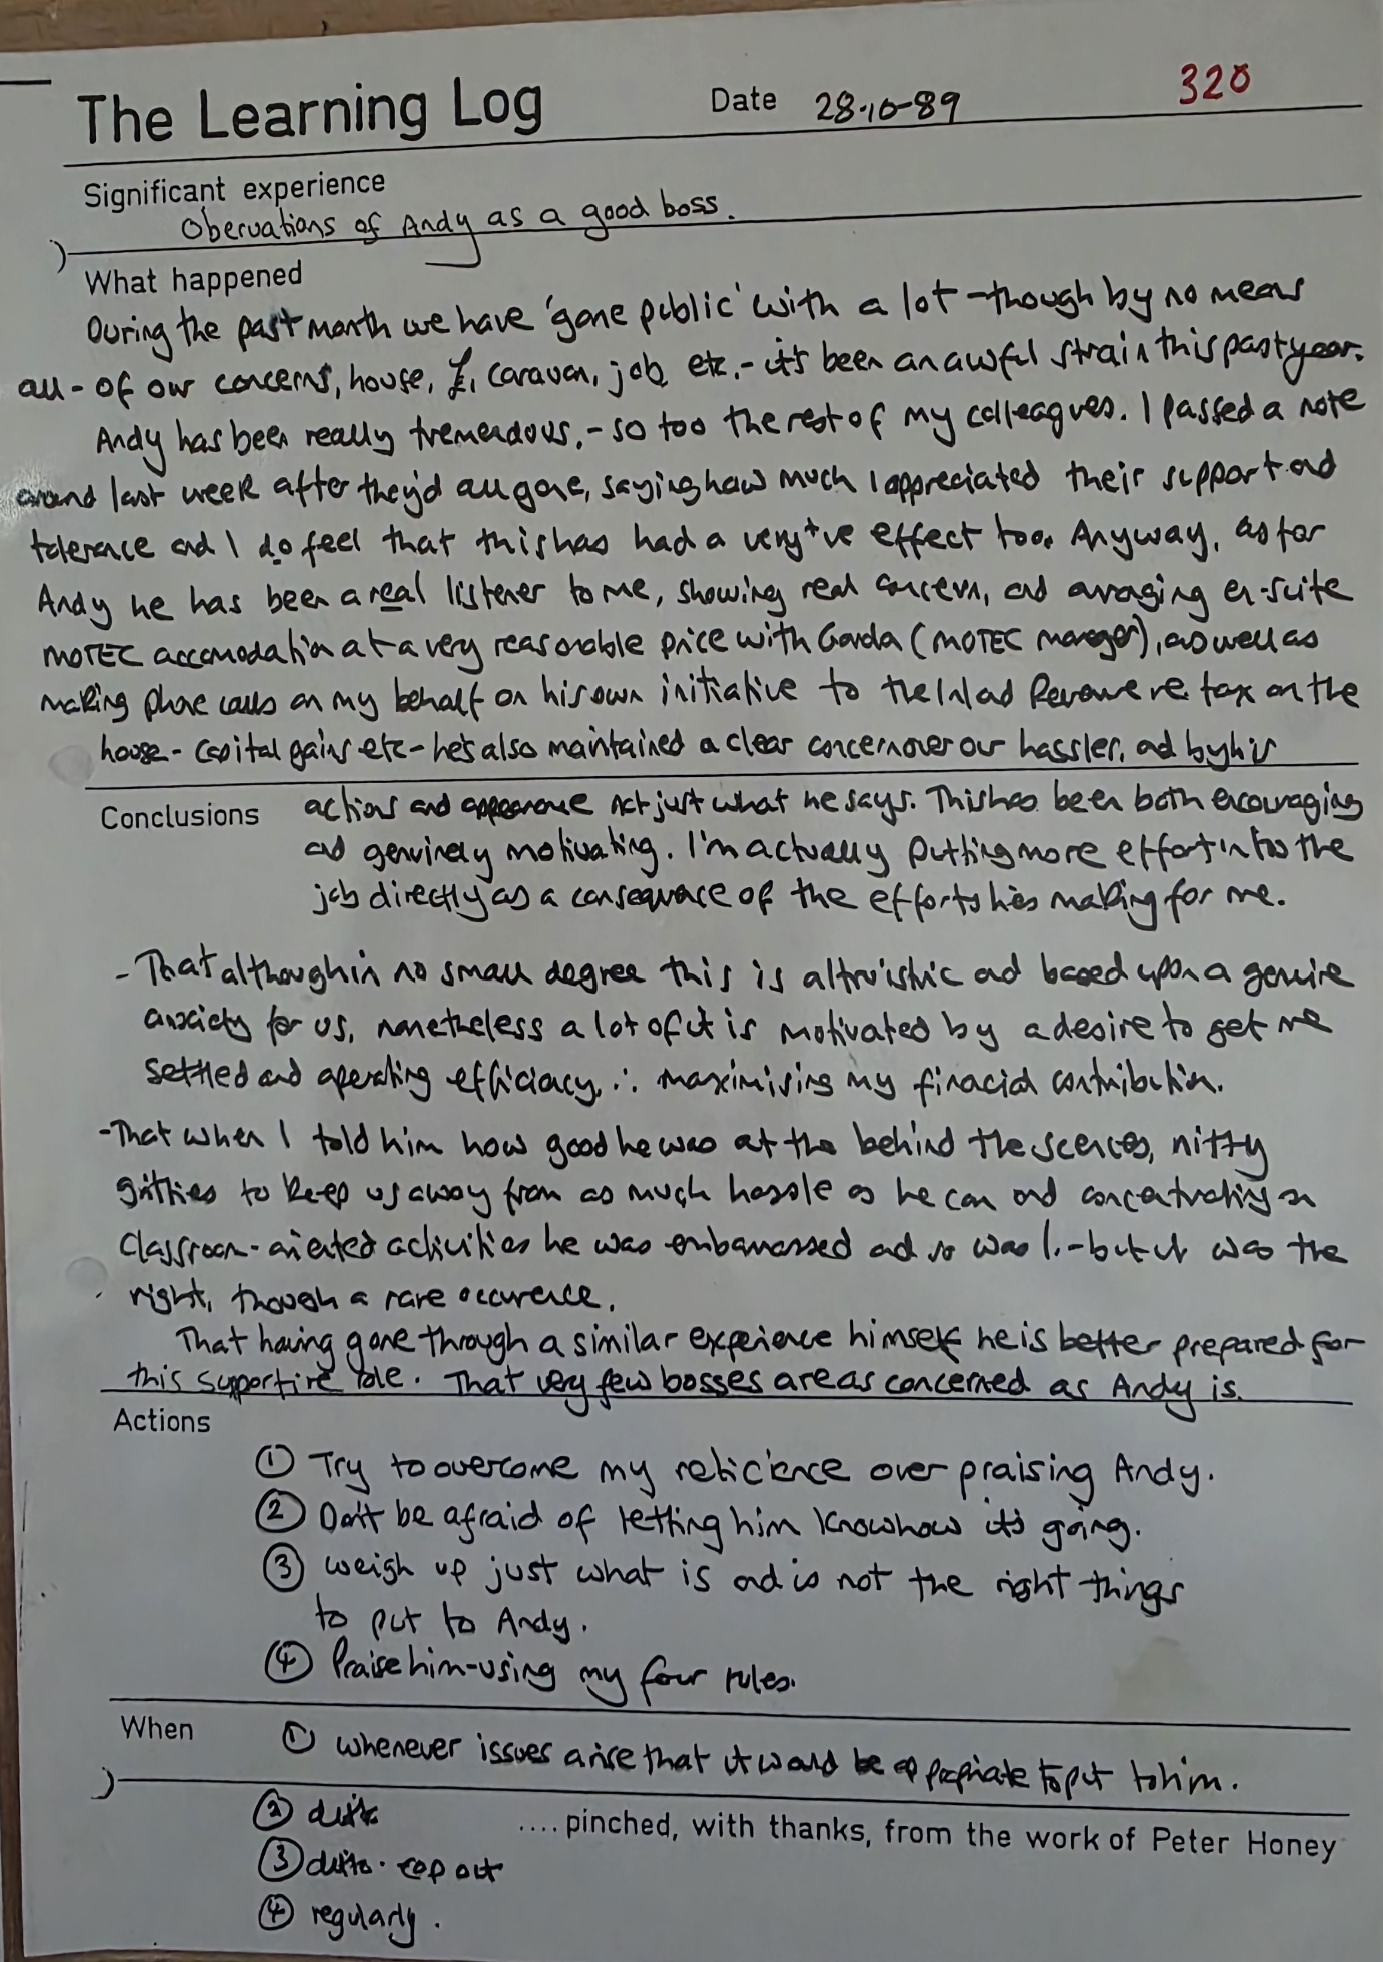 The Learning Log Date 28-10-89 320
Significant experience
Obervations of Andy as a good boss.
What happened
During the past month we have 'gone public' with a lot - though by no means
all - of our concerns, house, £, caravan, job, etc. - it's been an awful strain this past year.
Andy has been really tremendous, - so too the rest of my colleagues. I passed a note
around last week after they'd all gone, saying how much I appreciated their support and
tolerence and I do feel that this has had a very +ve effect too. Anyway, as for
Andy he has been a real listener to me, showing real concern, and arranging en-suite
MOTEC accomodation at a very reasonable price with Gorda (MOTEC manager), as well as
making phone calls on my behalf on his own initiative to the Inland Revenue re. tax on the
house - capital gains etc - he's also maintained a clear concern over our hassles, and by his
Conclusions actions and appearance not just what he says. This has been both encouraging
and genuinely motivating. I'm actually putting more effort into the
job directly as a consequence of the efforts he's making for me.
- That although in no small degree this is altruistic and based upon a genuine
anxiety for us, nonetheless a lot of it is motivated by a desire to get me
settled and operating efficiacy, ∴ maximising my financial contribution.
- That when I told him how good he was at the behind the scences, nitty
gritties to keep us away from as much hassle as he can and concentrating on
classroom-oriented activities he was embarrassed and so was I, - but it was the
right, though a rare occurence.
That having gone through a similar experience himself he is better prepared for
this supportive role. That very few bosses are as concerned as Andy is.
Actions
① Try to overcome my reticience over praising Andy.
② Don't be afraid of letting him know how it's going.
③ weigh up just what is and is not the right things
to put to Andy.
④ Praise him - using my four rules.
When ① whenever issues arise that it would be appropriate to put to him.
② ditto
.... pinched, with thanks, from the work of Peter Honey
③ ditto. cop out
④ regularly.